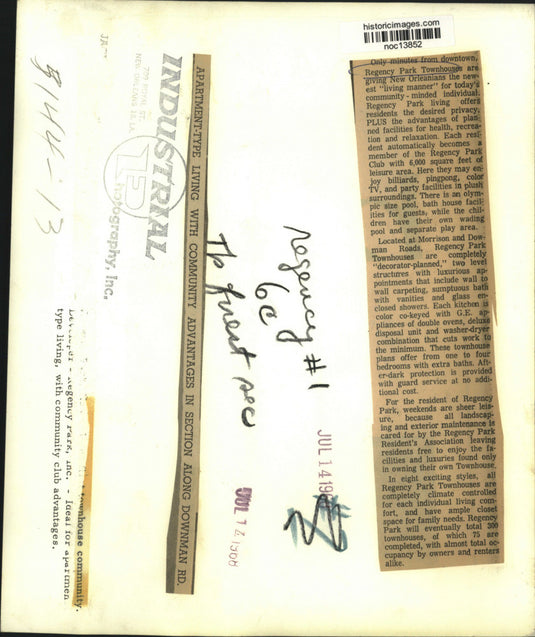 historicimages.com
noc13852
Only minutes from downtown,
Regency Park Townhouses are
giving New Orleanians the new-
est "living manner" for today's
community-minded individual.
Regency Park living offers
residents the desired privacy,
PLUS the advantages of plan-
ned facilities for health, recrea-
tion and relaxation. Each resi-
dent automatically becomes a
member of the Regency Park
Club with 6,000 square feet of
leisure area. Here they may en-
joy billiards, pingpong, color
TV, and party facilities in plush
surroundings. There is an olym-
pic size pool, bath house facil-
ities for guests, while the chil-
dren have their own wading
pool and separate play area.
Located at Morrison and Dow-
man Roads, Regency Park
Townhouses are completely
"decorator-planned," two level
structures with luxurious ap-
pointments that include wall to
wall carpeting, sumptuous bath
with vanities and glass en-
closed showers. Each kitchen is
color co-keyed with G.E. ap-
pliances of double ovens, deluxe
disposal unit and washer-dryer
combination that cuts work to
the minimum. These townhouse
plans offer from one to four
bedrooms with extra baths. Aft-
er-dark protection is provided
with guard service at no addi-
tional cost.
For the resident of Regency
Park, weekends are sheer leis-
ure, because all landscap-
ing and exterior maintenance is
cared for by the Regency Park
Resident's Association leaving
residents free to enjoy the fa-
cilities and luxuries found only
in owning their own Townhouse.
In eight exciting styles, all
Regency Park Townhouses are
completely climate controlled
for each individual living com-
fort, and have ample closet
space for family needs. Regency
Park will eventually total 300
townhouses, of which 75 are
completed, with almost total oc-
cupancy by owners and renters
alike.
Regency #1
6c
JUL 14 19
JUL 14 1968
APARTMENT-TYPE LIVING WITH COMMUNITY ADVANTAGES IN SECTION ALONG DOWNMAN RD.
INDUSTRIAL
Photography, Inc.
NEW ORLEANS 12, LA.
8144-13
townhouse community.
Developer - Regency Park, Inc. - Ideal for apartmen
type living, with community club advantages.